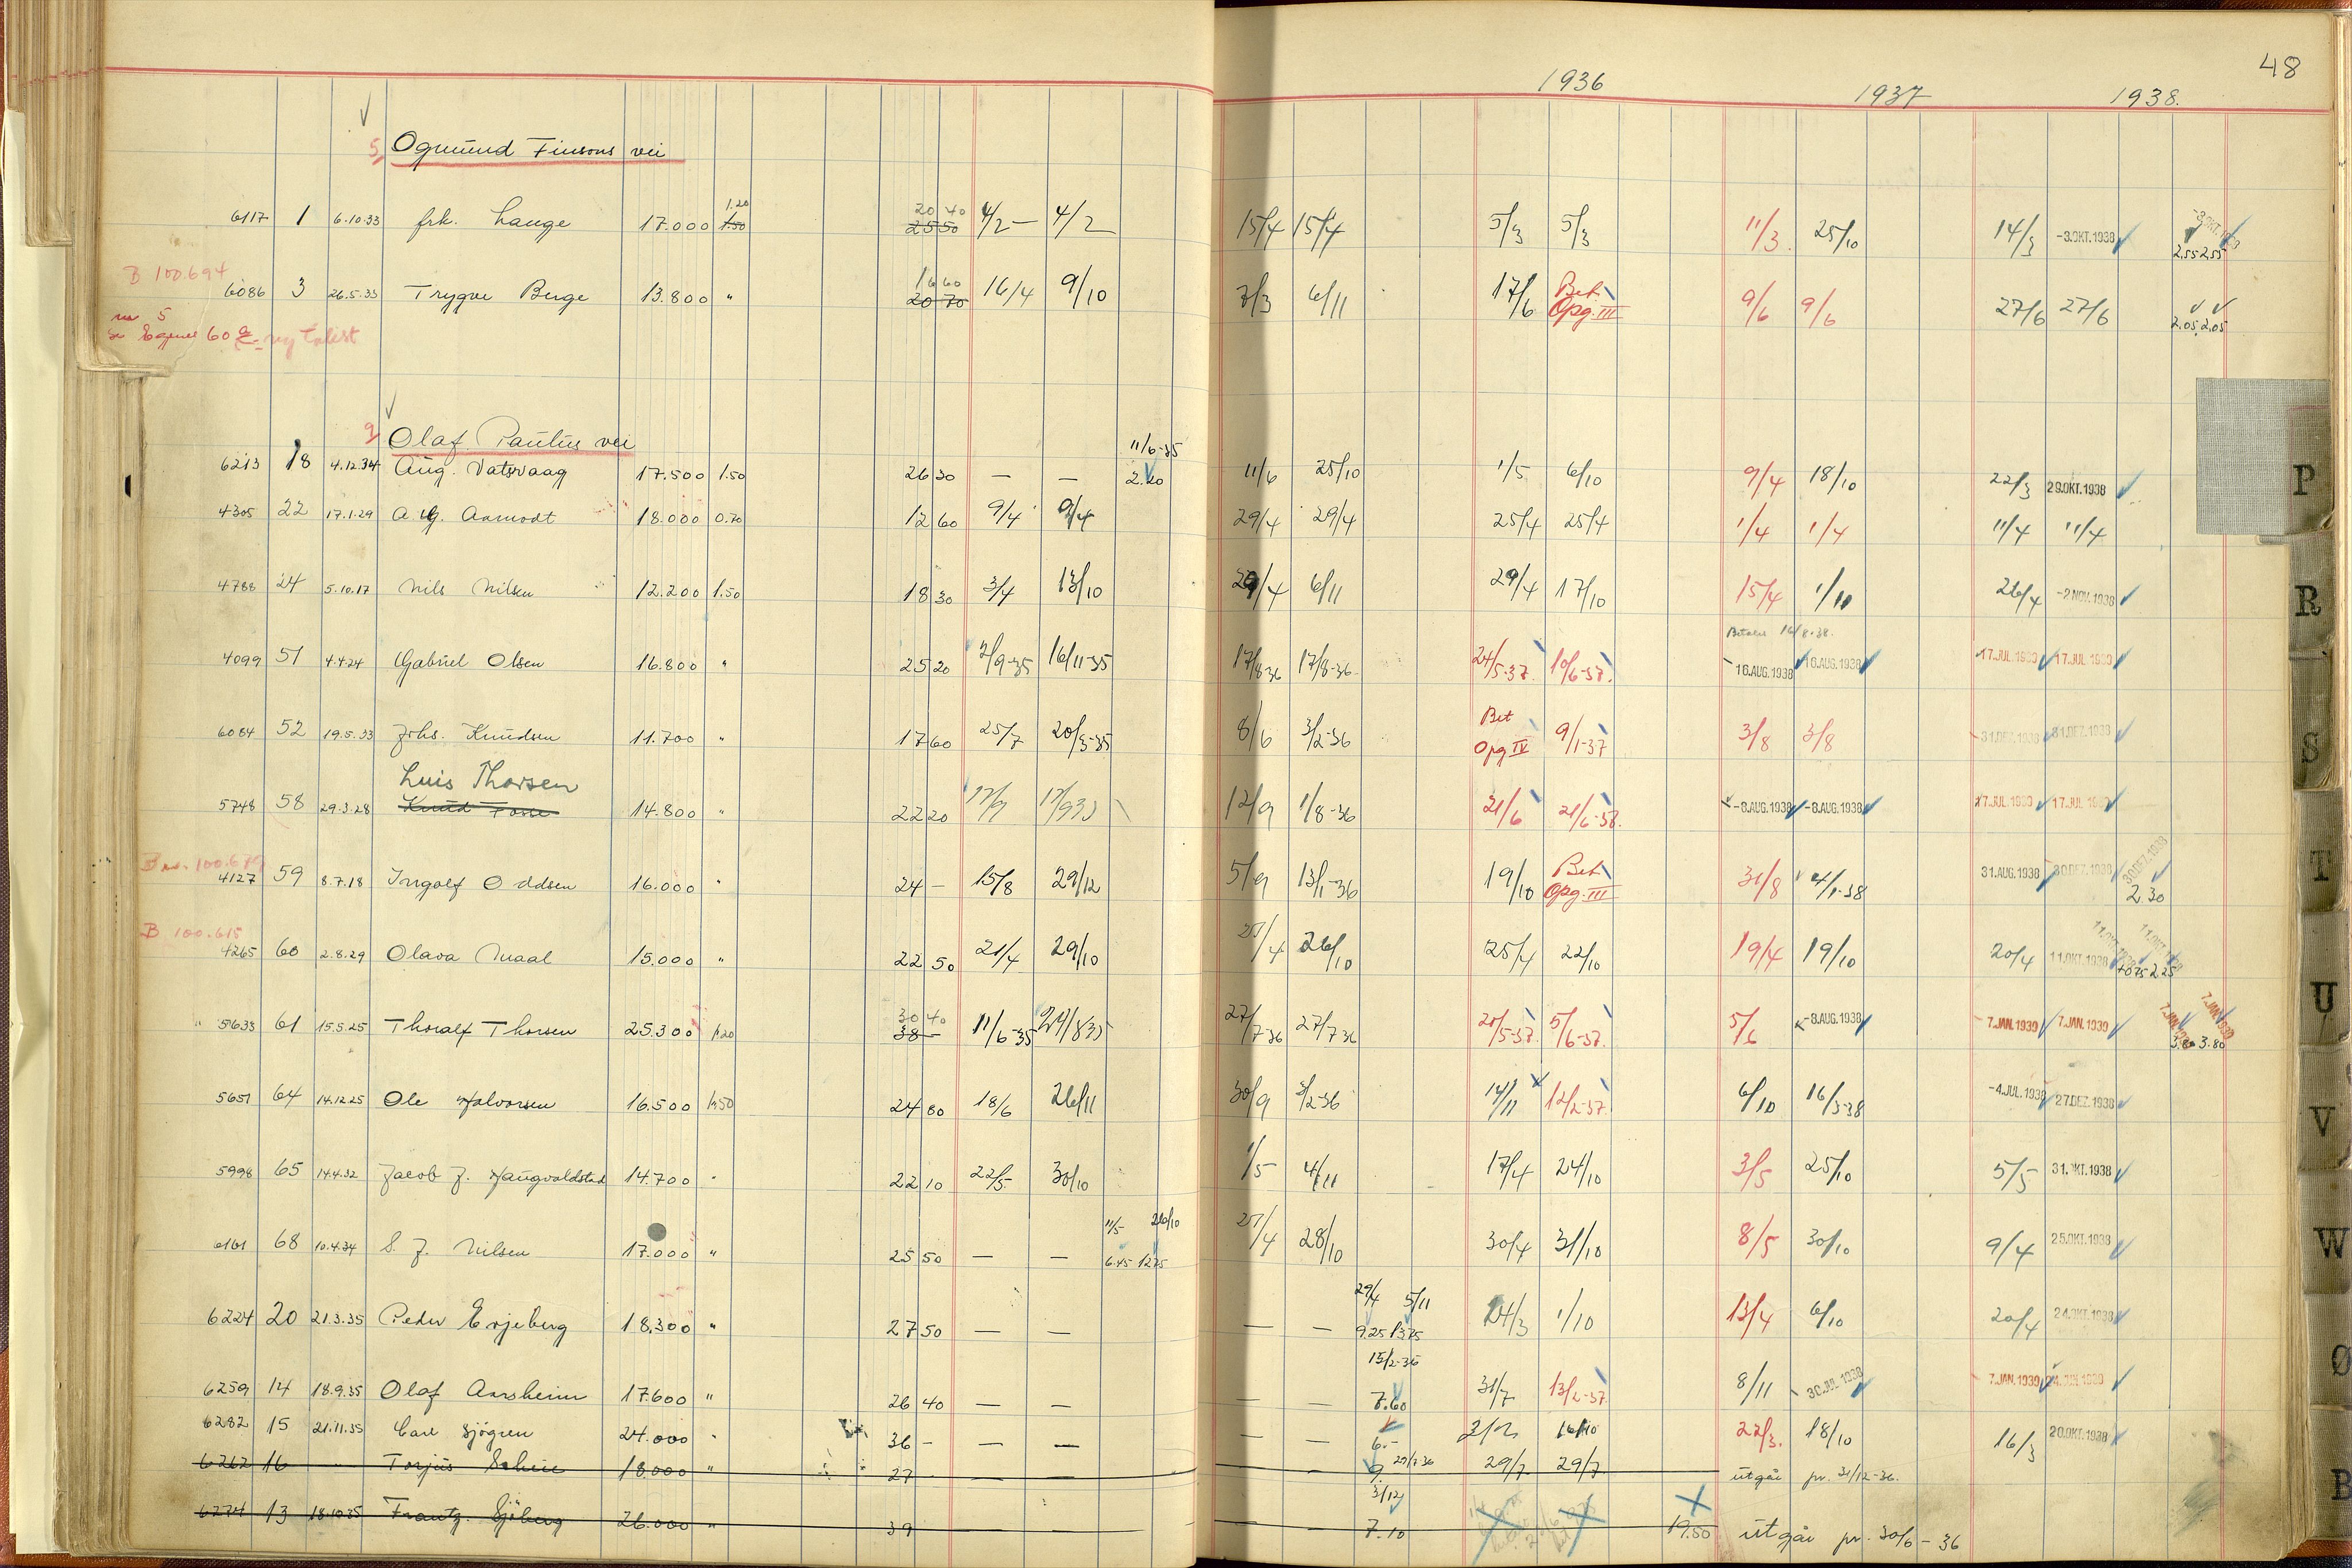 48
1936 1937 1938.
5 Ogmund Finsons vei
6117 1 6.10.33 frk. Lange 17.000 1.20 1.50 20 40 25 50 4/2 — 4/2 15/4 15/4 5/3 5/3 11/3. 25/10 14/3 -3.OKT.1938 2.55 2.55
B 100.694
6086 3 26.5.33 Trygve Berge 13.800 " 16 60 20 70 16/4 9/10 7/3 6/11 17/6 Bet. Opg. III 9/6 9/6 27/6 27/6 2.05 2.05
5
60 ny
9 Olaf Paulus vei
6213 18 4.12.34 Aug. Vatsvaag 17.500 1.50 26 30 — — 11/6-35 2.20 11/6 25/10 1/5 6/10 9/4 18/10 22/3 29.OKT.1938
4305 22 17.1.29 A. G. Aamodt 18.000 0.70 12 60 9/4 9/4 29/4 29/4 25/4 25/4 1/4 1/4 11/4 11/4
4788 24 5.10.17 Nils Nilsen 12.200 1.50 18 30 3/4 13/10 29/4 6/11 29/4 17/10 15/4 1/11 26/4 -2 NOV. 1938
16/8-38.
4099 51 4.4.24 Gabriel Olsen 16.800 " 25 20 2/9-35 16/11-35 17/8-36 17/8-36 24/5-37 10/6-37. 16.AUG.1938 16.AUG.1938 17.JUL.1939 17.JUL.1939
6084 52 19.5.33 Johs. Knudsen 11.700 " 17 60 25/7 20/3-35 8/6 3/2-36 Bet Opg IV 9/1-37 3/8 3/8 31.DEZ.1938 31.DEZ.1938
Luis Thorsen
5748 58 29.3.28 Knud Fosse 14.800 " 22 20 17/9 12/9 1/8-36 21/6 21/6-38. -8.AUG.1938 -8.AUG.1938 17.JUL.1939 17.JUL.1939
B nr. 100.679
4127 59 8.7.18 Ingolf Oddsen 16.000 " 24 — 15/8 29/12 5/9 13/1-36 19/10 Bet Opg. III 31/8 4/1-38 31.AUG.1938 30.DEZ.1938 30.DEZ.1938 2.30
B 100.615
4265 60 2.8.29 Olava Maal 15.000 " 22 50 21/4 29/10 26/10 25/4 22/10 19/4 19/10 20/4 11.OKT.1938 11.OKT.1938 11.OKT.1938 2.25
5633 61 15.5.25 Thoralf Thorsen 25.300 1.20 30 40 38 — 11/6-35 24/8 35 27/7-36 27/7 36 20/5-37. 5/6-37. 5/6 -8.AUG.1938 7.JAN.1939 7.JAN.1939 7.JAN.1939 7.JAN.1939 3.80 3.80
5651 64 14.12.25 Ole Halvorsen 16.500 1.50 24 80 18/6 26/11 30/9 3/2-36 14/11 12/2-37. 6/10 16/3-38 -4.JUL.1938 27.DEZ.1938
5998 65 14.4.32 Jacob J. Haugvaldstad 14.700 " 22 10 22/5 30/10 1/5 4/11 17/4 24/10 3/5 25/10 5/5 31.OKT.1938
6161 68 10.4.34 S. J. Nilsen 17.000 " 25 50 — — 11/5 26/10 6.45 12.75 28/10 30/4 31/10 8/5 30/10 9/4 25.OKT.1938
6224 20 21.3.35 Peder Erjeberg 18.300 " 27 50 — — — — 29/4 5/11 9.25 13.75 24/3 1/10 13/4 6/10 20/4 24.OKT.1938
6259 14 18.9.35 Olaf Aarsheim 17.600 " 26 40 — — — — 15/2-36 7.60 31/7 13/2-37. 8/11 30.JUL 1938 7.JAN.1939
6282 15 21.11.35 Carl Sjögren 24.000 " 36 — — — — — 6.- 16/10 22/3. 18/10 16/3 20.OKT.1938
6262 16 Torjus Scheie 18.000 " 27 9. 29/7 36 29/7 29/7 utgår pr. 31/12-36.
6274 13 18.10.35 Frantz Sjöberg 26.000 " 39 — — — — 3/12 7.10 19.50 utgår pr. 30/6-36
P
R
S
T
U
V
W
Ø
B